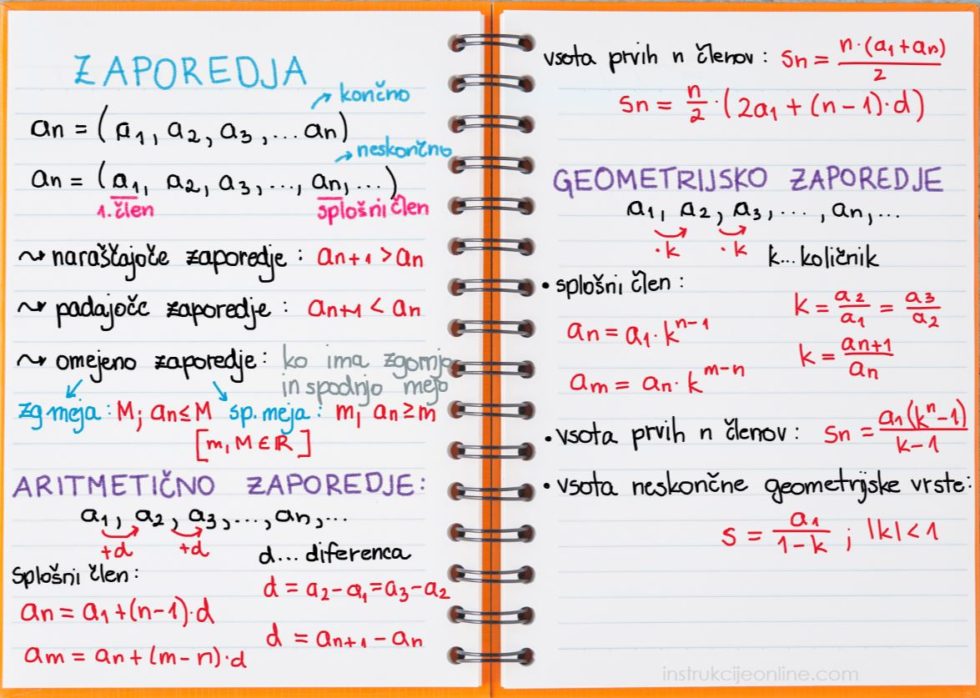 ZAPOREDJA
končno
an = (a1, a2, a3, ... an)
neskončno
an = (a1, a2, a3, ..., an, ...)
1. člen splošni člen
⇝ naraščajoče zaporedje : an+1 > an
⇝ padajoče zaporedje : an+1 < an
⇝ omejeno zaporedje: ko ima zgornjo
in spodnjo mejo
zg meja : M; an ≤ M sp. meja : m; an ≥ m
[m, M ∈ R]
ARITMETIČNO ZAPOREDJE:
a1, a2, a3, ..., an, ...
+d +d d... diferenca
Splošni člen:
d = a2 - a1 = a3 - a2
an = a1 + (n-1)·d
d = an+1 - an
am = an + (m-n)·d
vsota prvih n členov : Sn = n·(a1+an)/2
Sn = n/2 · (2a1 + (n-1)·d)
GEOMETRIJSKO ZAPOREDJE
a1, a2, a3, ..., an, ...
·k ·k k... količnik
• splošni člen :
k = a2/a1 = a3/a2
an = a1 · k^n-1
k = an+1/an
am = an · k^m-n
• vsota prvih n členov : Sn = a1(k^n-1)/k-1
• vsota neskončne geometrijske vrste:
S = a1/1-k ; |k| < 1
instrukcijeonline.com